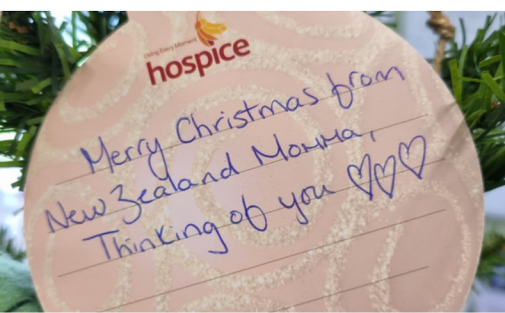 Living Every Moment
hospice
Merry Christmas from
New Zealand Momma,
Thinking of you ♡♡♡